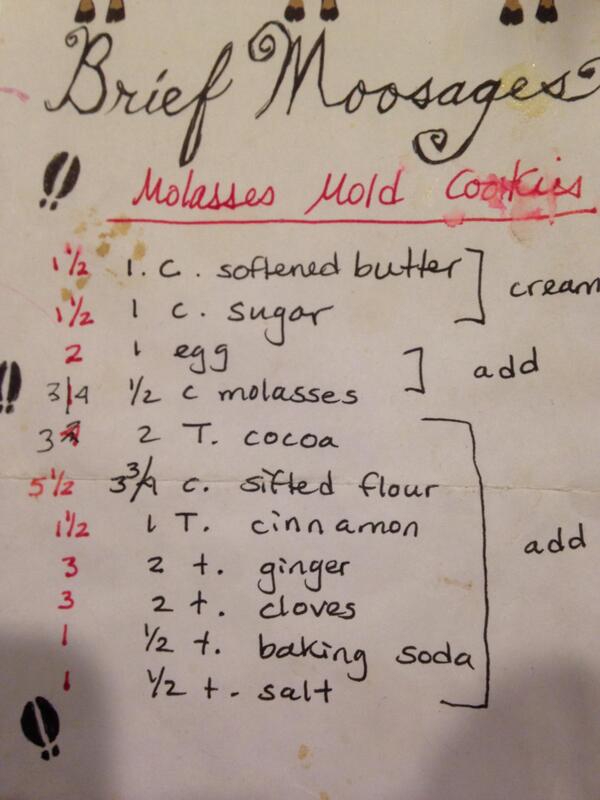 Brief Moosages
Molasses Mold Cookies
1½ 1. c. softened butter cream
1½ 1 c. sugar
2 1 egg add
3/4 ½ c molasses
3 2 T. cocoa
5½ 3 3/4 c. sifted flour
1½ 1 T. cinnamon
3 2 t. ginger add
3 2 t. cloves
1 ½ t. baking soda
1 ½ t. salt